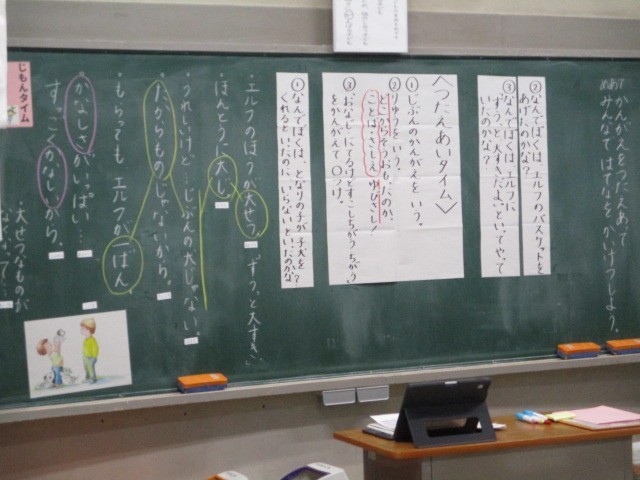 めあて かんがえをつたえあって
みんなで はてなを かいけつしよう。
② なんでぼくは、エルフのバスケットを
あげたのかな？
③ なんでぼくは、エルフに
「ずうっと、大すきだよ。」といってやって
いたのかな？
〈つたえあいタイム〉
① じぶんのかんがえを いう。
② りゆうを いう。
どこからそうおもったのか、
ことばをさしてゆびさし！
③ おなじ、にてるけどすこしちがう、ちがう
をかんがえて○つけ。
① なんでぼくは、となりの子が子犬を
くれるといったのに、いらないといったのかな？
・エルフのほうが大せつ。「ずうっと大すき」
ほんとうに大じ。
・うれしいけど…じぶんの犬じゃない。
・たからものじゃないから。
・もらっても、エルフが一ばん。
・かなしさがいっぱい…
すっごくかなしいから。
・大せつなものが
じもんタイム